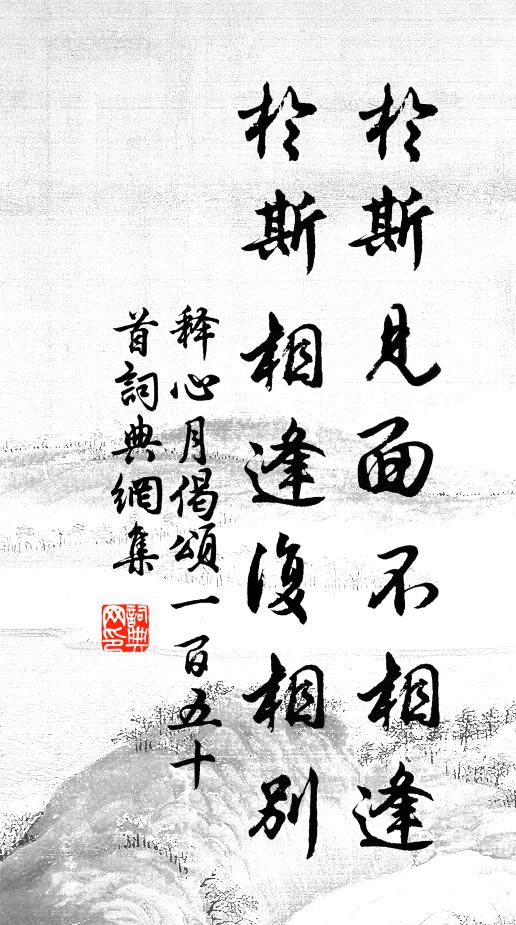 於斯見面不相逢
於斯相逢復相別
释心月偈頌一百五十
首詞典網集
詞典网印